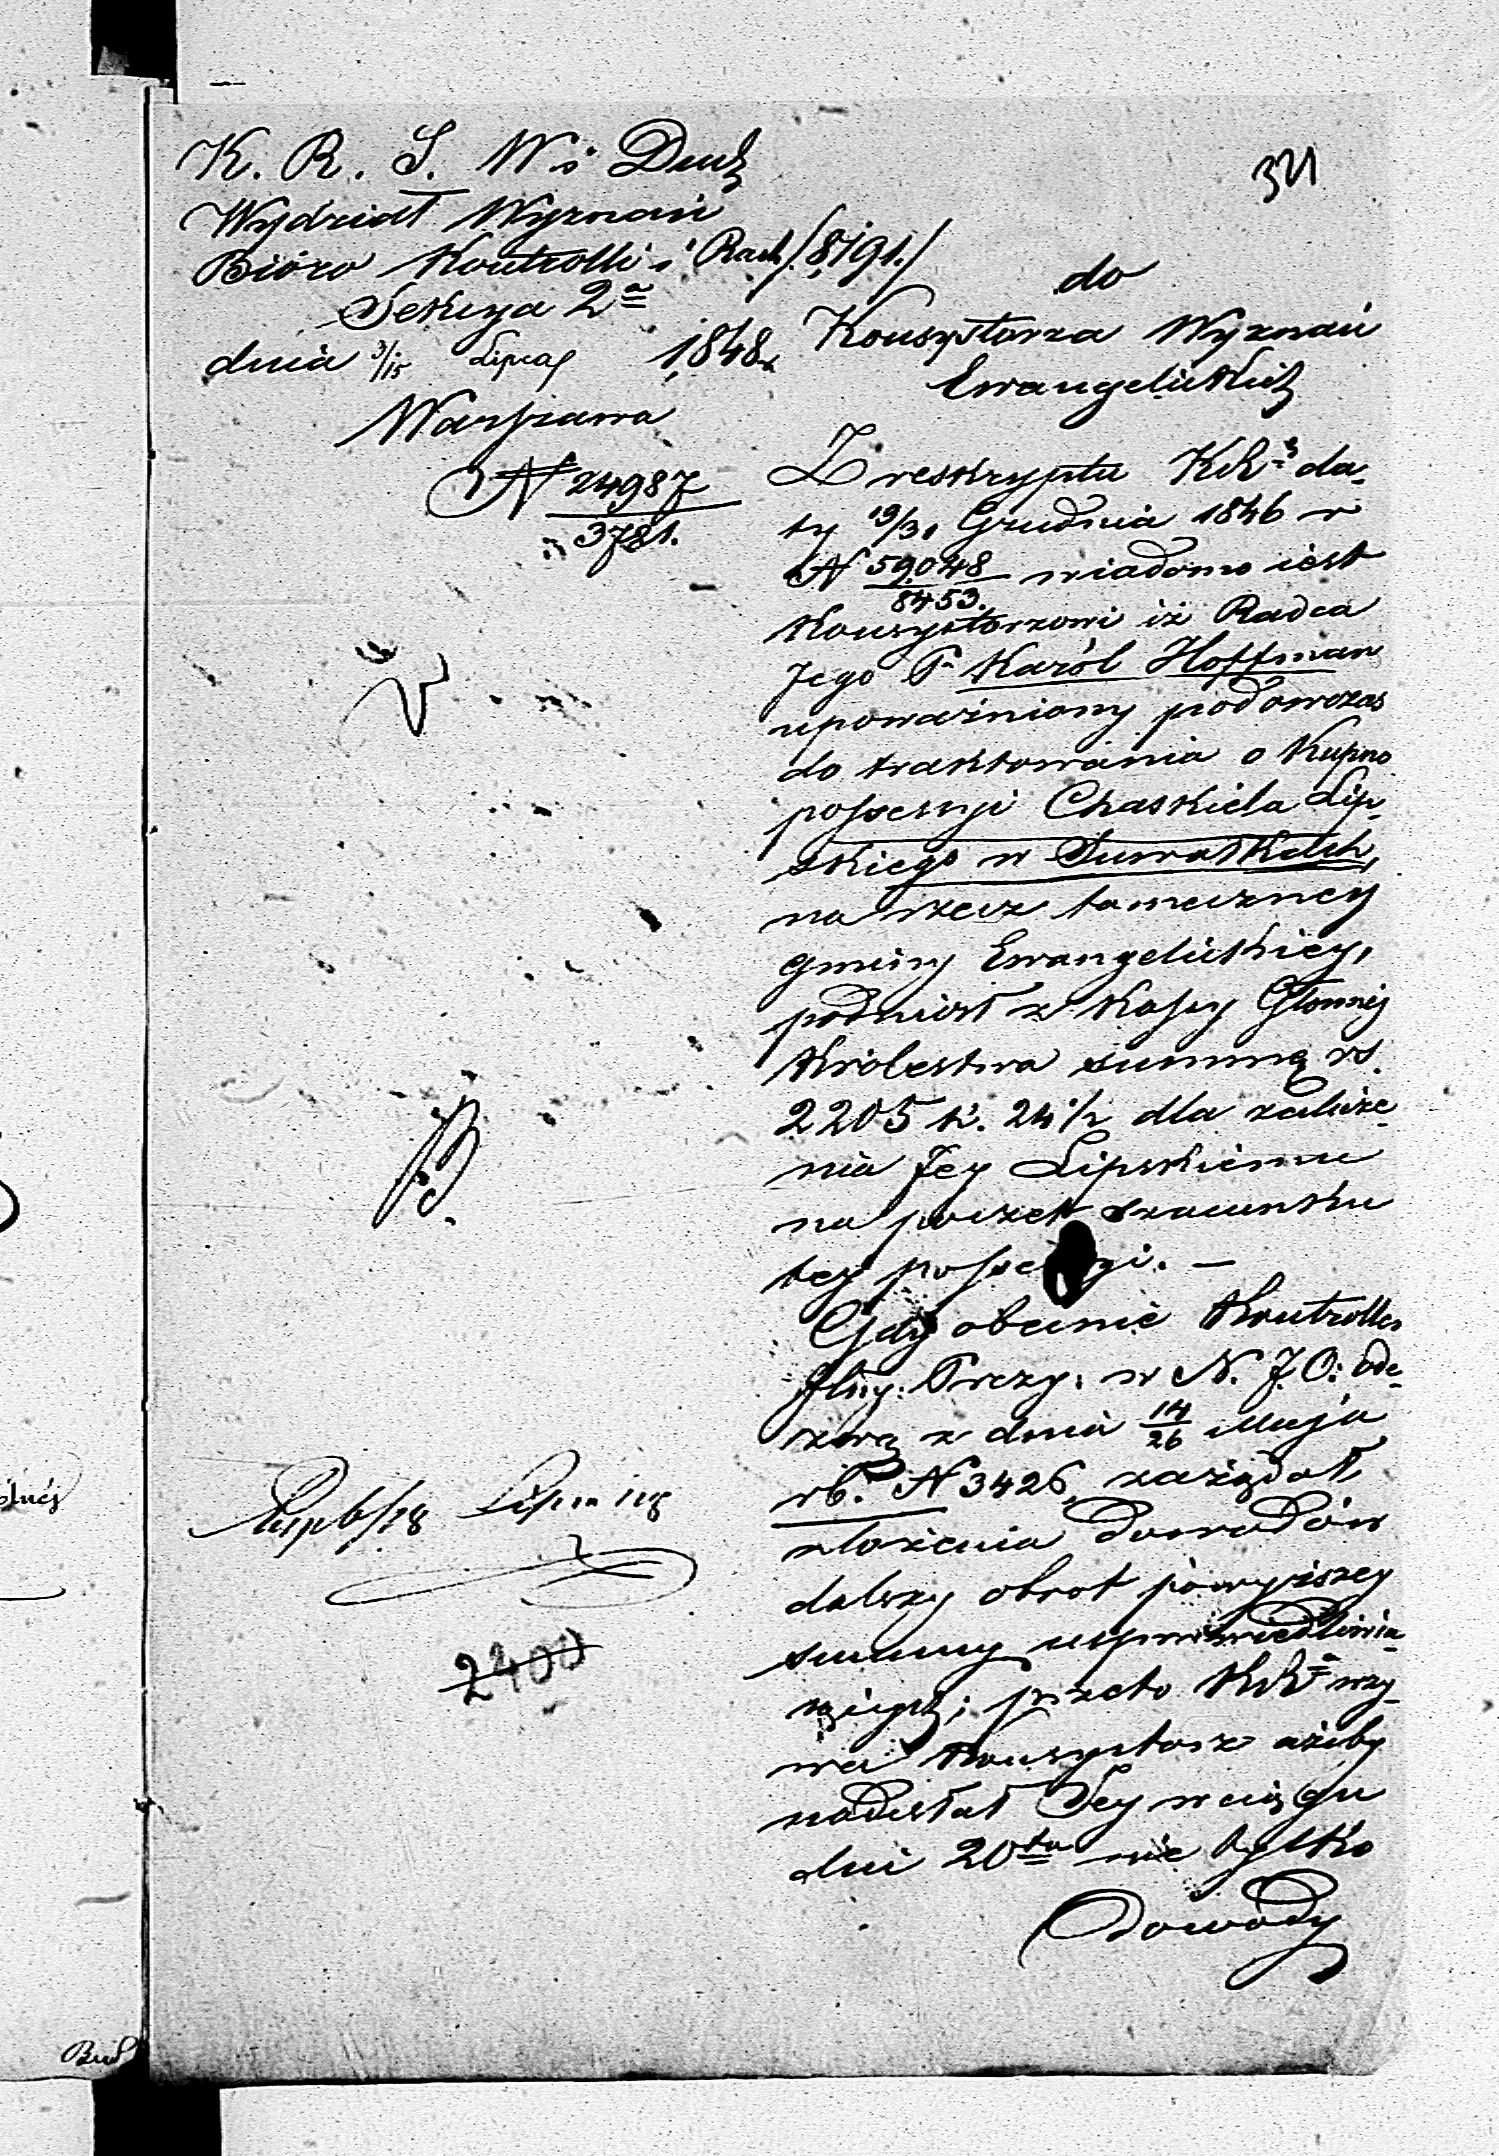 321
K. R. S. W. i Duch
Wydział Wyznań
Bióro Kontrolli i Rach. /8191./
Sekcya 2ª
dnia 3/15 Lipca 1848
Warszawa
N 24987
3781.
do
Konsystorza Wyznań
Ewangelickich
Z reskryptu KRz da-
ty 19/31 Grudnia 1846 r
N 59048
8453. wiadomo iest
Konsystorzowi iż Radca
Jego P. Karól Hoffman
upoważniony podówczas
do traktowania o Kupno
possessyi Chaskiela Lip-
skiego w Suwałkach,
na rzecz tameczney
gminy Ewangelickiey,
podniósł z Kassy Głównéj
Królestwa summę rs.
2205 k. 24 1/2 dla zalicze-
nia Jey Lipskiemu
na poczet szacunku
tey possessyi. —
Gdy obecnie Kontroller
Jlny: Prezy: w N. J. O: ode-
zwą z dnia 14/26 Maja
rb. N 3426, zażądał
złożenia dowodów
dalszy obrot powyższey
summy usprawiedliwia-
iących; przeto KRz wzy-
wa Konsystorz ażeby
nadesłał Jey w ciągu
dni 20tu nie tylko
dowody
Lipca
2400